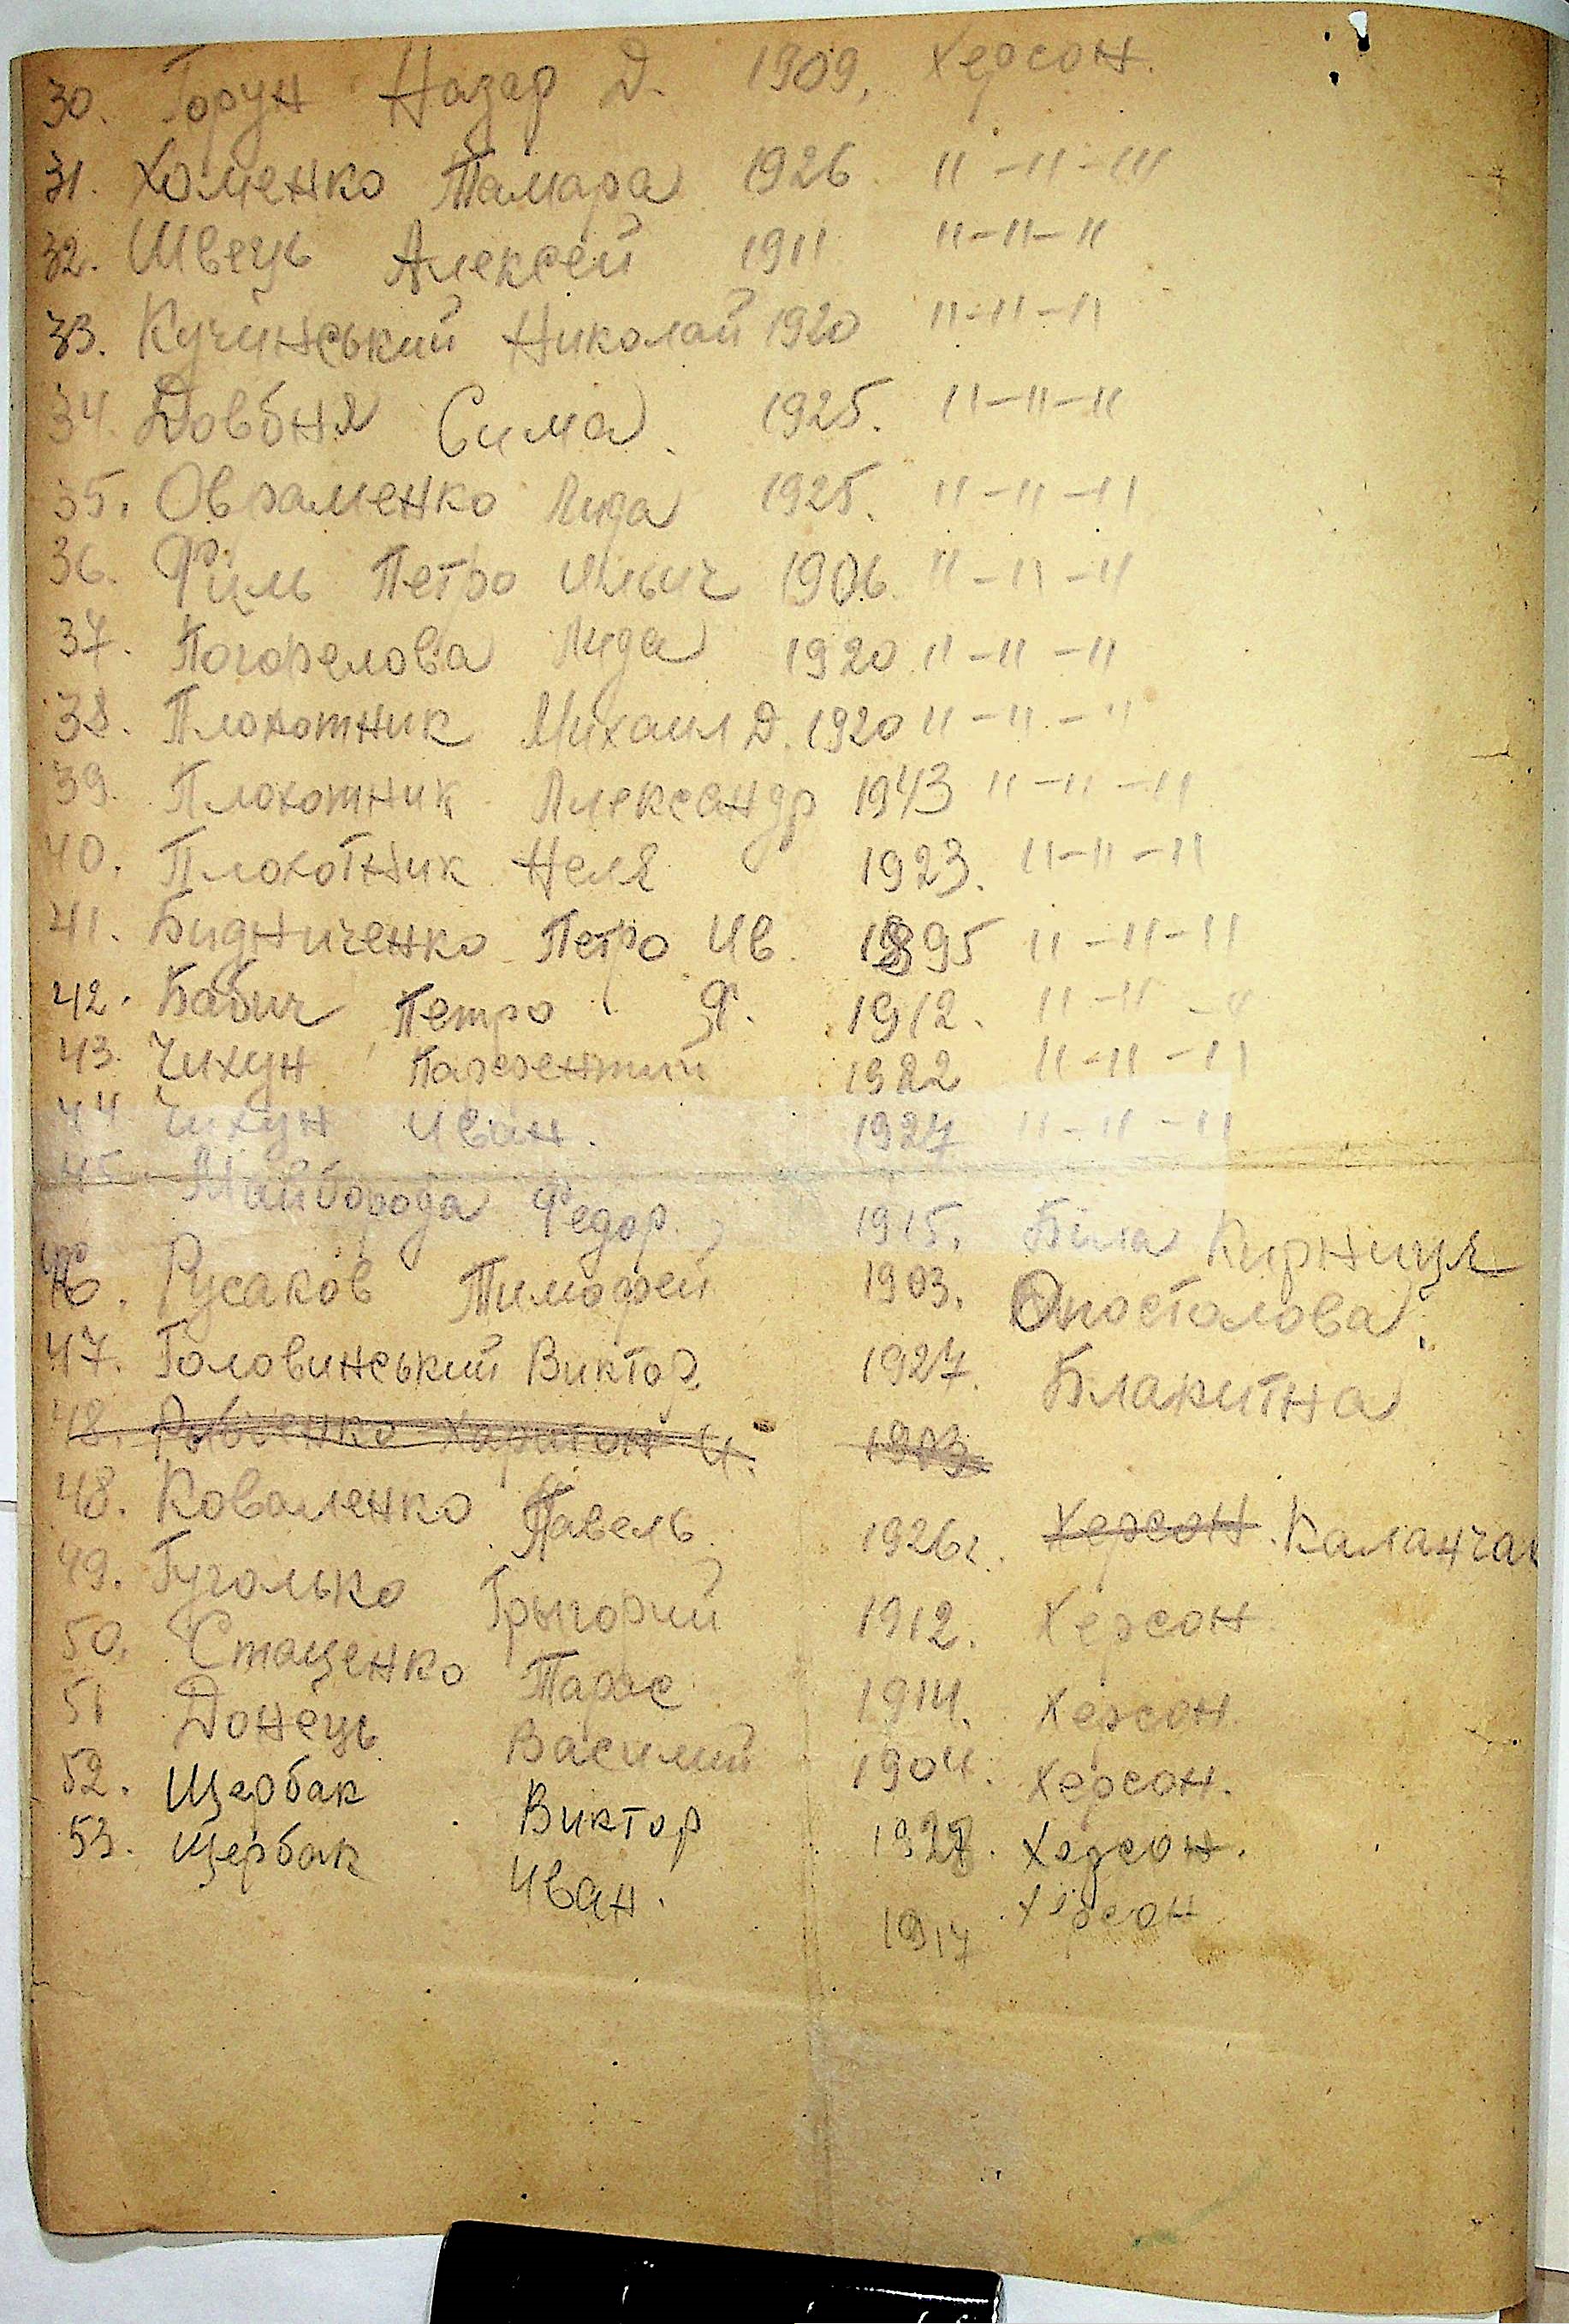 30. Горун Назар Д. 1909, Херсон.
31. Хоменко Тамара 1926 "-"-"
32. Швець Алексей 1911 "-"-"
33. Кучинський Николай 1920 "-"-"
34. Довбня Сима. 1925. "-"-"
35. Овраменко Лида 1925. "-"-"
36. Филь Петро Ильич 1906. "-"-"
37. Погорелова Лида 1920 "-"-"
38. Плохотник Михаил Д. 1920 "-"-"
39. Плохотник Александр 1943 "-"-"
40. Плохотник Неля 1923. "-"-"
41. Бидниченко Петро Ив. 1895 "-"-"
42. Бабич Петро Ф. 1912. "-"-"
43. Чихун 1922 "-"-"
44 Чихун Иван. 1927 "-"-"
45. Майборода Федор. 1915. Біла Кирниця
46. Русаков Тимофей 1903. Опостолова.
47. Головинський Виктор. 1927. Блакитна
48. Харитон И. 1903
48. Коваленко Павель. 1926г. Херсон. Каланчак
49. Гуголько Грыгорий 1912. Херсон
50. Стаценко Тарас 1914. Херсон.
51 Донець Василий 1904. Херсон.
52. Щербак Виктор 1928. Херсон.
53. Щербак Иван. 1917 Херсон